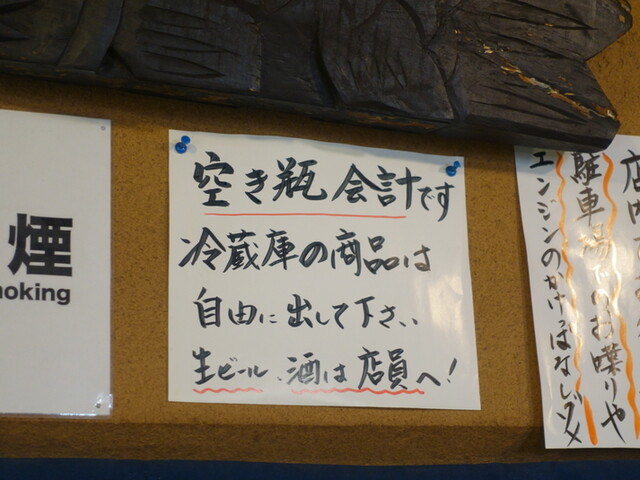 煙
moking
空き瓶会計です
冷蔵庫の商品は
自由に出して下さい
生ビール、酒は店員へ!
駐車場でのお喋りや
エンジンのかけっぱなしダメ